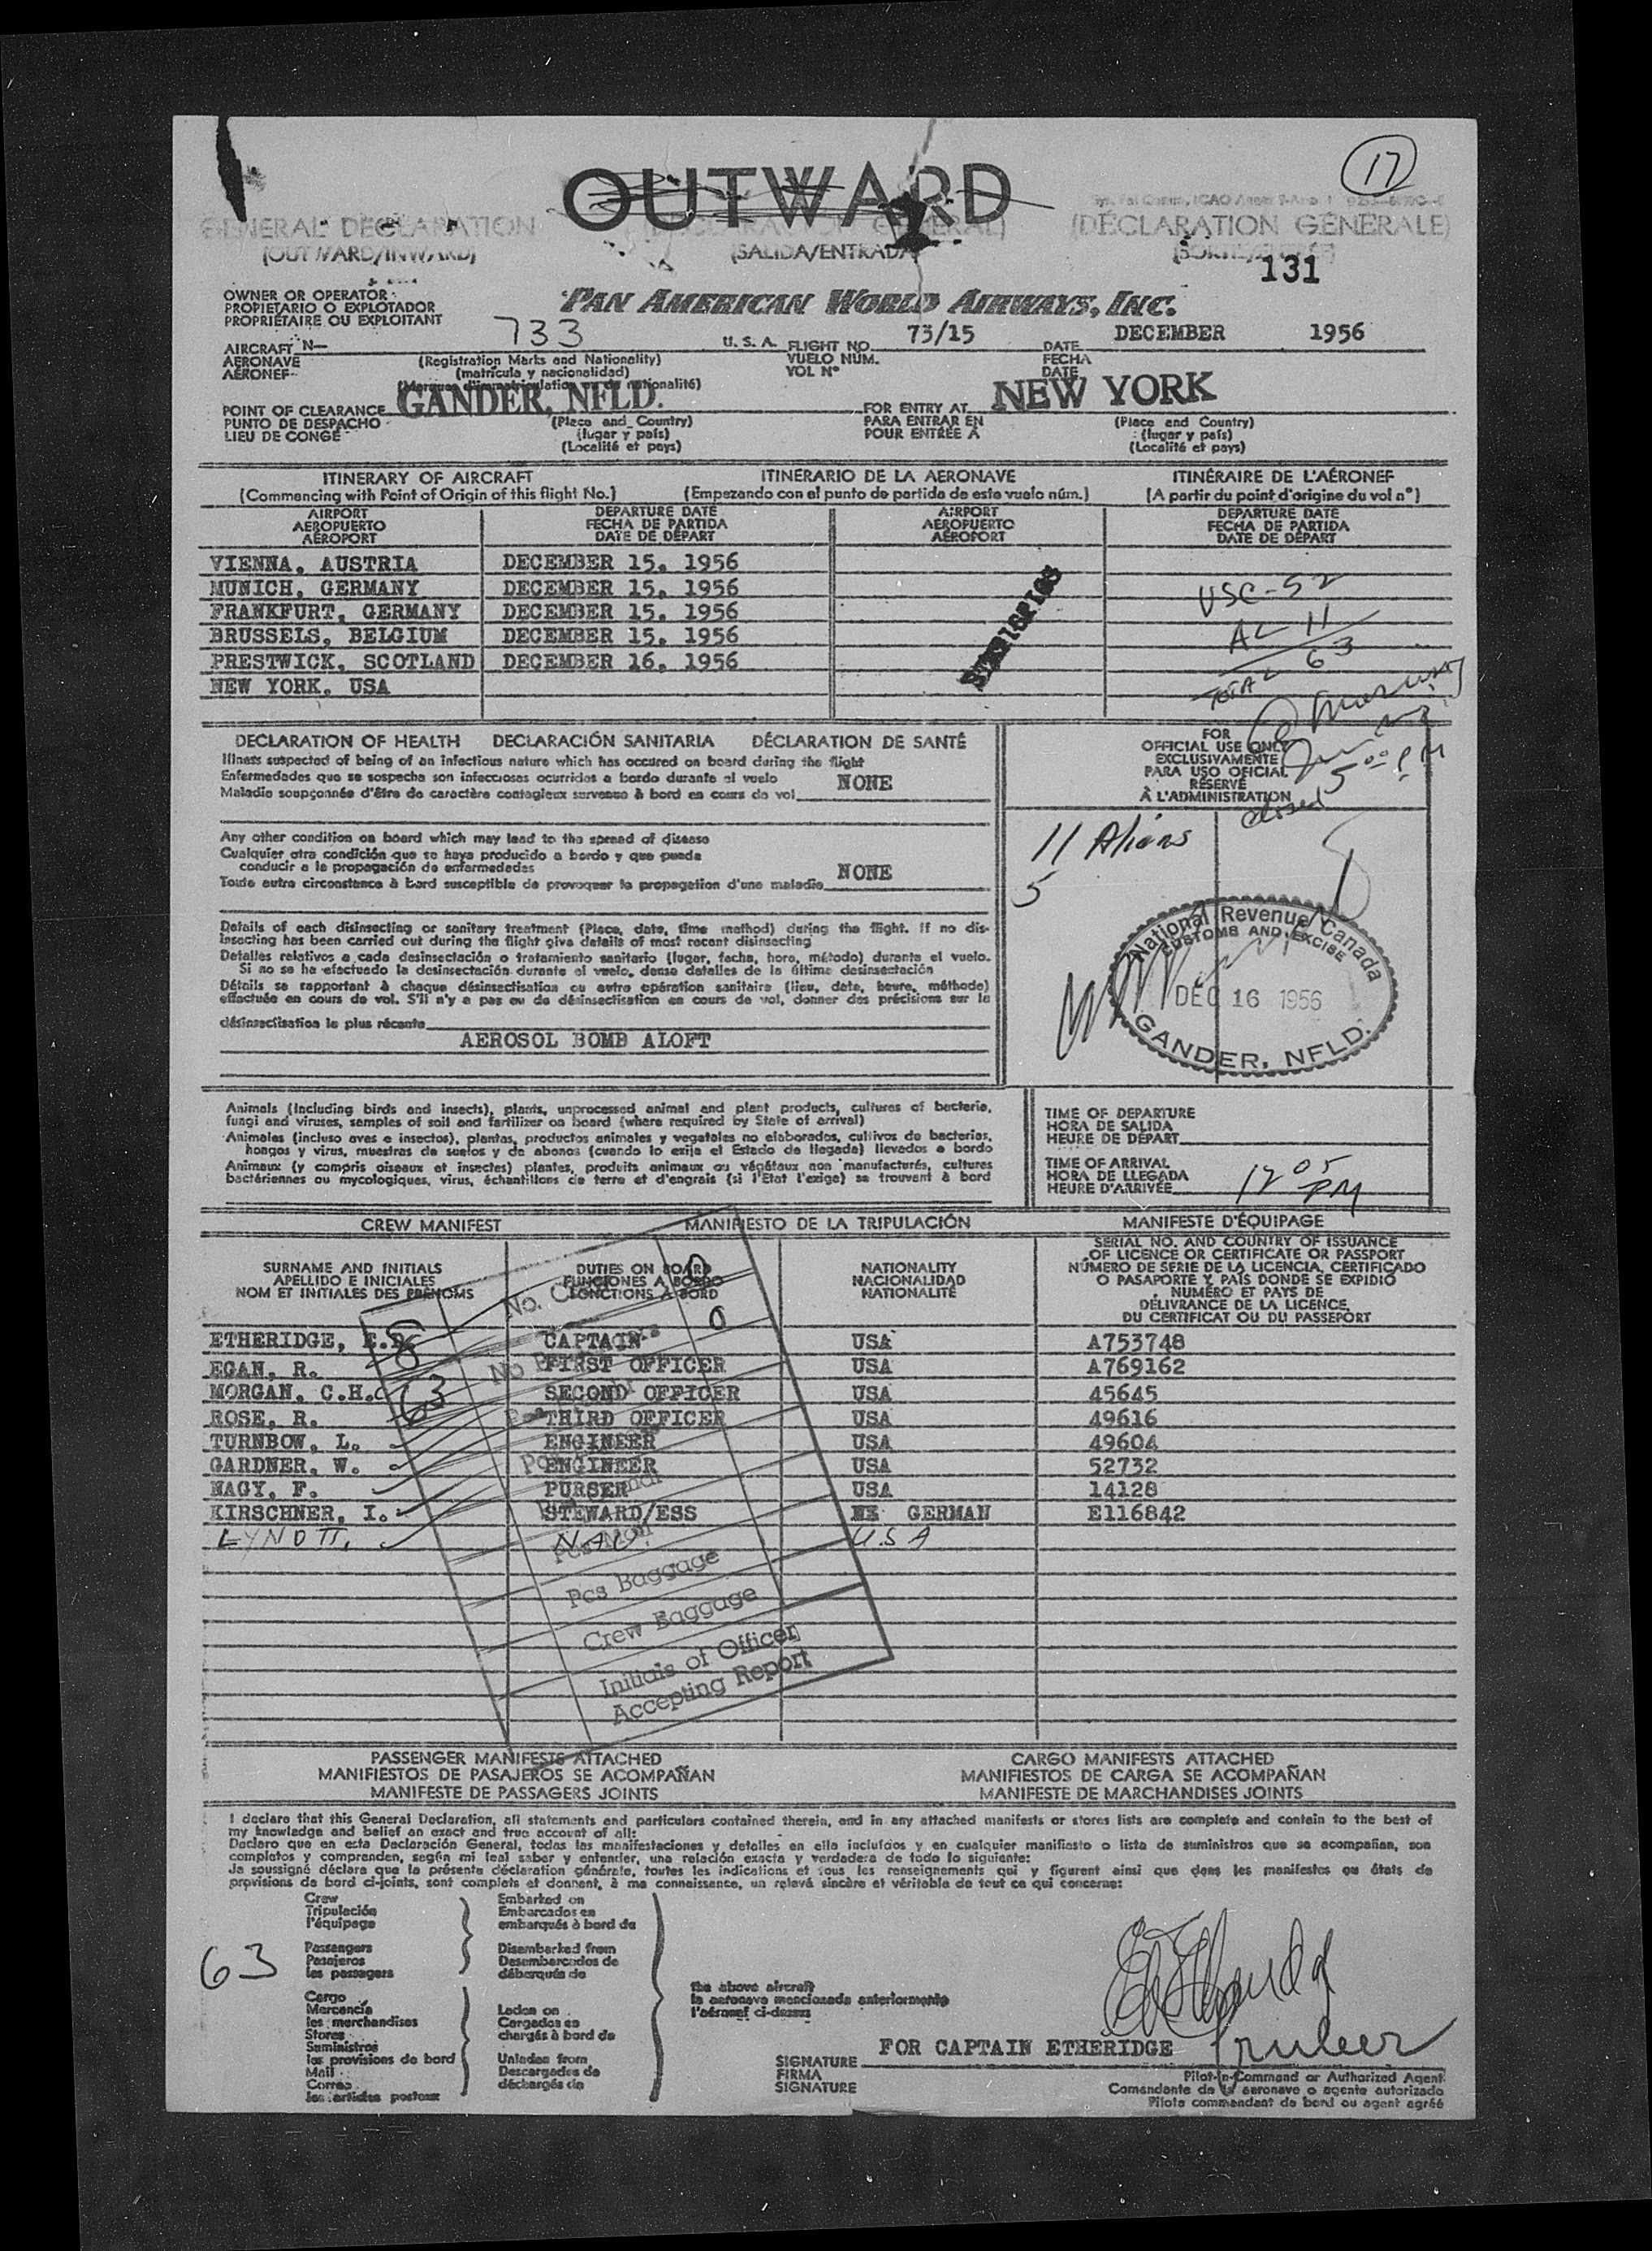 17
OUTWARD
GENERAL DECLARATION
(DÉCLARATION GÉNÉRALE)
(OUTWARD/INWARD)
(SALIDA/ENTRADA)
131
OWNER OR OPERATOR
PROPIETARIO O EXPLOTADOR
PROPRIÉTAIRE OU EXPLOITANT
PAN AMERICAN WORLD AIRWAYS, INC.
AIRCRAFT N— 733 U. S. A. FLIGHT NO. 73/15 DATE DECEMBER 1956
AERONAVE (Registration Marks and Nationality) VUELO NÚM. FECHA
AÉRONEF (matrícula y nacionalidad) VOL Nº DATE
(Marques d'immatriculation et de nationalité)
POINT OF CLEARANCE GANDER, NFLD. FOR ENTRY AT NEW YORK
PUNTO DE DESPACHO (Place and Country) PARA ENTRAR EN (Place and Country)
LIEU DE CONGÉ (lugar y país) POUR ENTRÉE À (lugar y país)
(Localité et pays) (Localité et pays)
ITINERARY OF AIRCRAFT ITINERARIO DE LA AERONAVE ITINÉRAIRE DE L'AÉRONEF
(Commencing with Point of Origin of this flight No.) (Empezando con el punto de partida de este vuelo núm.) (A partir du point d'origine du vol nº)
AIRPORT DEPARTURE DATE AIRPORT DEPARTURE DATE
AEROPUERTO FECHA DE PARTIDA AEROPUERTO FECHA DE PARTIDA
AÉROPORT DATE DE DÉPART AÉROPORT DATE DE DÉPART
VIENNA, AUSTRIA DECEMBER 15, 1956
MUNICH, GERMANY DECEMBER 15, 1956
FRANKFURT, GERMANY DECEMBER 15, 1956
BRUSSELS, BELGIUM DECEMBER 15, 1956
PRESTWICK, SCOTLAND DECEMBER 16, 1956
NEW YORK, USA
USC-52
AL 11
TOTAL 63
DECLARATION OF HEALTH DECLARACIÓN SANITARIA DÉCLARATION DE SANTÉ
Illness suspected of being of an infectious nature which has occured on board during the flight
Enfermedades que se sospecha son infecciosas ocurridas a bordo durante el vuelo
Maladie soupçonnée d'être de caractère contagieux survenue à bord en cours de vol NONE
FOR
OFFICIAL USE ONLY
EXCLUSIVAMENTE
PARA USO OFICIAL
RÉSERVÉ
À L'ADMINISTRATION
closed 5 00 PM
Any other condition on board which may lead to the spread of disease
Cualquier otra condición que se haya producido a bordo y que pueda
conducir a la propagación de enfermedades
Toute autre circonstance à bord susceptible de provoquer la propagation d'une maladie NONE
11 Aliens
5
Details of each disinsecting or sanitary treatment (Place, date, time method) during the flight. If no dis-
insecting has been carried out during the flight give details of most recent disinsecting
Detalles relativos a cada desinsectación o tratamiento sanitario (lugar, fecha, hora, método) durante el vuelo.
Si no se ha efectuado la desinsectación durante el vuelo, dense detalles de la última desinsectación
Détails se rapportant à chaque désinsectisation ou autre opération sanitaire (lieu, date, heure, méthode)
effectuée en cours de vol. S'il n'y a pas eu de désinsectisation en cours de vol, donner des précisions sur la
désinsectisation la plus récente
AEROSOL BOMB ALOFT
National Revenue Canada
CUSTOMS AND EXCISE
DEC 16 1956
GANDER, NFLD.
Animals (including birds and insects), plants, unprocessed animal and plant products, cultures of bacteria,
fungi and viruses, samples of soil and fertilizer on board (where required by State of arrival)
Animales (incluso aves e insectos), plantas, productos animales y vegetales no elaborados, cultivos de bacterias,
hongos y virus, muestras de suelos y de abonos (cuando lo exija el Estado de llegada) llevados a bordo
Animaux (y compris oiseaux et insectes) plantes, produits animaux ou végétaux non manufacturés, cultures
bactériennes ou mycologiques, virus, échantillons de terre et d'engrais (si l'Etat l'exige) se trouvant à bord
TIME OF DEPARTURE
HORA DE SALIDA
HEURE DE DÉPART
TIME OF ARRIVAL
HORA DE LLEGADA
HEURE D'ARRIVÉE 12 05 PM
CREW MANIFEST MANIFIESTO DE LA TRIPULACIÓN MANIFESTE D'ÉQUIPAGE
SURNAME AND INITIALS
APELLIDO E INICIALES
NOM ET INITIALES DES PRÉNOMS
DUTIES ON BOARD
FUNCIONES A BORDO
FONCTIONS À BORD
NATIONALITY
NACIONALIDAD
NATIONALITÉ
SERIAL NO. AND COUNTRY OF ISSUANCE
OF LICENCE OR CERTIFICATE OR PASSPORT
NÚMERO DE SERIE DE LA LICENCIA, CERTIFICADO
O PASAPORTE Y PAÍS DONDE SE EXPIDIÓ
NUMÉRO ET PAYS DE
DÉLIVRANCE DE LA LICENCE,
DU CERTIFICAT OU DU PASSEPORT
ETHERIDGE, CAPTAIN USA A753748
EGAN, R. FIRST OFFICER USA A769162
MORGAN, C.H. SECOND OFFICER USA 45645
ROSE, R. THIRD OFFICER USA 49616
TURNBOW, L. ENGINEER USA 49604
GARDNER, W. ENGINEER USA 52732
NAGY, F. PURSER USA 14128
KIRSCHNER, I. STEWARD/ESS GERMAN E116842
LYNOTT, NAV. U.S.A
8
63
0
Pcs Mail
Pcs Baggage
Crew Baggage
Initials of Officer
Accepting Report
PASSENGER MANIFESTS ATTACHED CARGO MANIFESTS ATTACHED
MANIFIESTOS DE PASAJEROS SE ACOMPAÑAN MANIFIESTOS DE CARGA SE ACOMPAÑAN
MANIFESTE DE PASSAGERS JOINTS MANIFESTE DE MARCHANDISES JOINTS
I declare that this General Declaration, all statements and particulars contained therein, and in any attached manifests or stores lists are complete and contain to the best of
my knowledge and belief an exact and true account of all:
Declaro que en esta Declaración General, todas las manifestaciones y detalles en ella incluídos y en cualquier manifiesto o lista de suministros que se acompañan, son
completos y comprenden, según mi leal saber y entender, una relación exacta y verdadera de todo lo siguiente:
Je soussigné déclare que la présente déclaration générale, toutes les indications et tous les renseignements qui y figurent ainsi que dans les manifestes ou états de
provisions de bord ci-joints, sont complets et donnent, à ma connaissance, un relevé sincère et véritable de tout ce qui concerne:
Crew
Tripulación
l'équipage
Embarked on
Embarcados en
embarqués à bord de
63
Passengers
Pasajeros
les passagers
Disembarked from
Desembarcados de
débarqués de
Cargo
Mercancía
les merchandises
Stores
Suministros
les provisions de bord
Mail
Correo
les articles postaux
Laden on
Cargados en
chargés à bord de
Unladen from
Descargados de
déchargés de
the above aircraft
la aeronave mencionada anteriormente
l'aéronef ci-dessus
FOR CAPTAIN ETHERIDGE
SIGNATURE
FIRMA
SIGNATURE
Pilot-in-Command or Authorized Agent
Comandante de la aeronave o agente autorizado
Pilote commandant de bord ou agent agréé